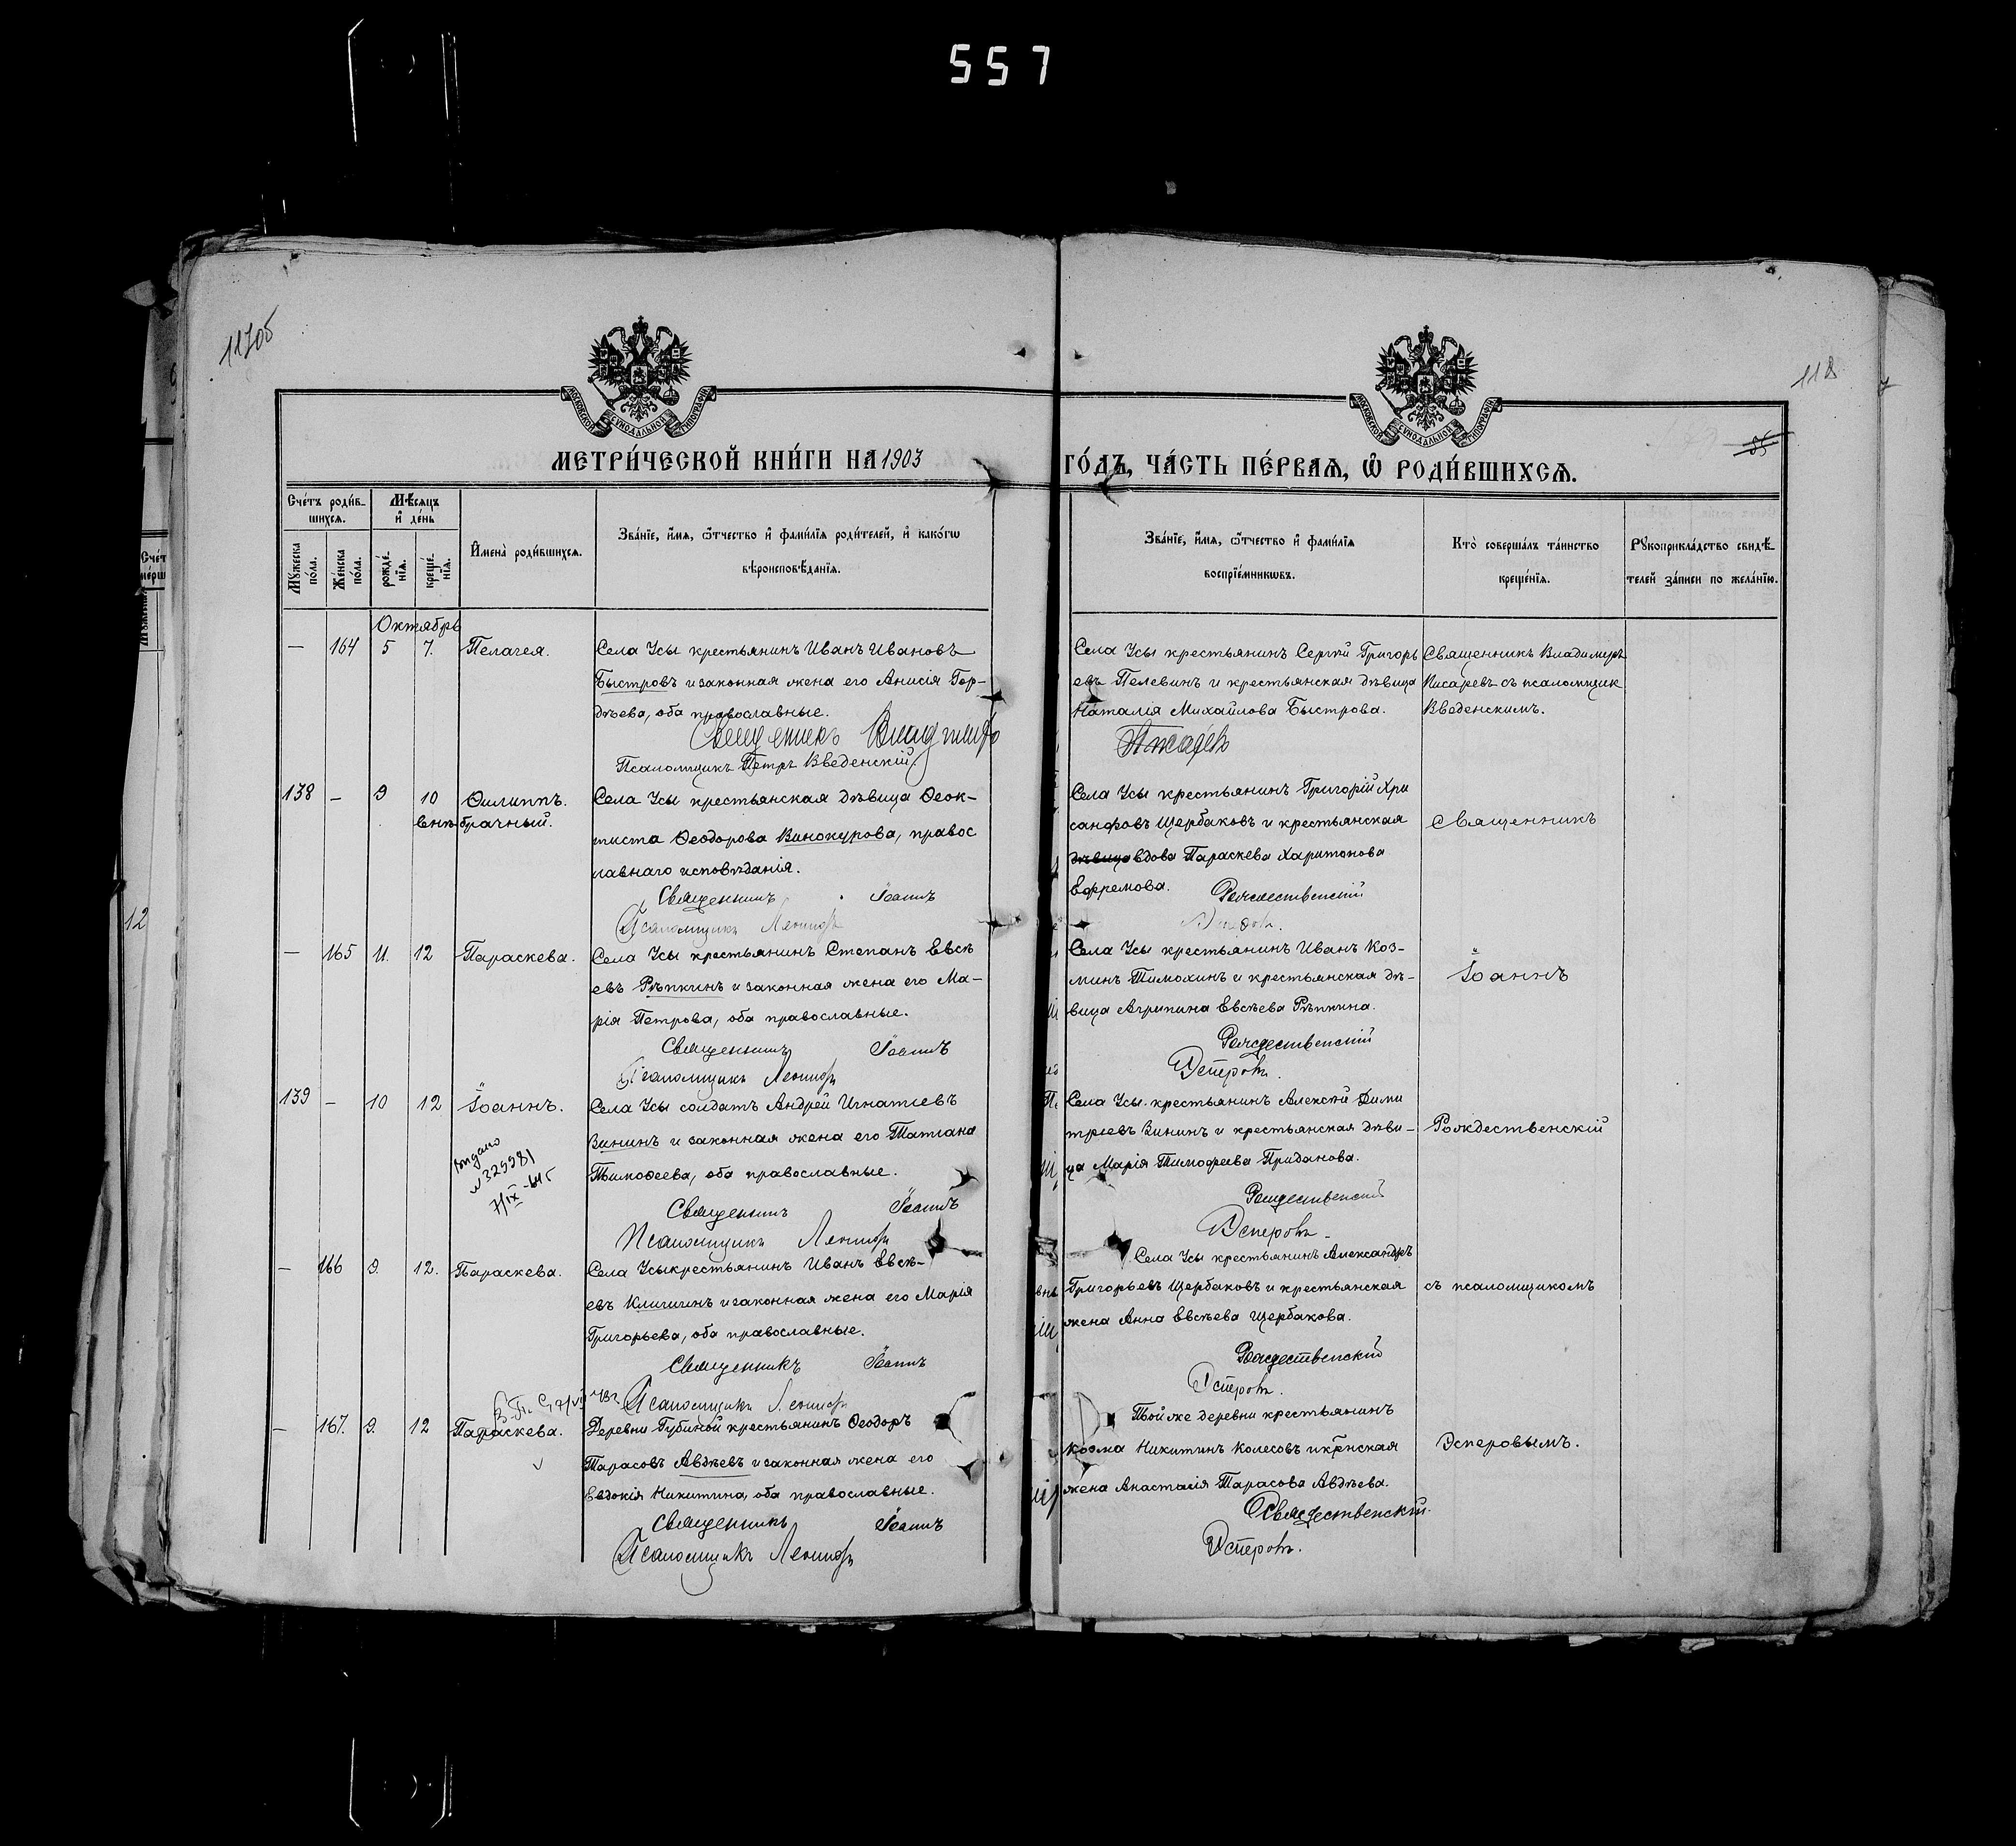 557
117об
118
МОСКОВСКОЙ СУНОДАЛЬНОЙ ТИПОГРАФІИ
МОСКОВСКОЙ СУНОДАЛЬНОЙ ТИПОГРАФІИ
МЕТРИ́ЧЕСКОЙ КНИ́ГИ НА 1903
ГО́ДЪ, ЧА́СТЬ ПЕ́РВАѦ, Ѽ РОДИ́ВШИХСѦ.
Сче́тъ роди́в-
шихся.
Мѣ́сяцъ
и҆ де́нь
Мꙋ́жеска
по́ла.
Же́нска
по́ла.
рожде́-
нїѧ.
креще́-
нїѧ.
И҆мена̀ роди́вшихся.
Зва́нїе, и҆́мя, ѻ҆́тчество и҆ фами́лїя роди́телей, и҆ како́гѡ
вѣроисповѣ́данїя.
Зва́нїе, и҆́мя, ѻ҆́тчество и҆ фами́лїя
воспрїе́мникѡвъ.
Кто̀ соверша́лъ та́инство
креще́нїя.
Рꙋкоприкла́дство свидѣ́-
телей за́писи по жела́нїю.
Октябрь
— 164 5 7. Пелагея.
Села Усы крестьянинъ Иванъ Ивановъ
Быстровъ и законная жена его Анисія Гор-
дѣева, оба православные.
Священникъ Владимиръ
Псаломщикъ Петръ Введенскій
Села Усы крестьянинъ Сергѣй Григорь
евъ Пелевинъ и крестьянская дѣвица
Наталія Михайлова Быстрова.
Писаревъ
Священникъ Владимиръ
Писаревъ съ псаломщик
Введенскимъ.
138 — 9 10 Филиппъ.
внѣбрачный.
Села Усы крестьянская дѣвица Ѳеок-
тиста Ѳеодорова Винокурова, правос
лавнаго исповѣданія.
Священникъ Іоаннъ
Псаломщикъ Леонидъ
Села Усы крестьянинъ Григорій Хри
санфовъ Щербаковъ и крестьянская
дѣвица вдова Параскева Харитонова
Ефремова. Рождественскій
Эсперовъ.
Священникъ
— 165 11. 12 Параскева.
Села Усы крестьянинъ Степанъ Евсѣ
евъ Рѣпкинъ и законная жена его Ма-
рія Петрова, оба православные.
Священникъ Іоаннъ
Псаломщикъ Леонидъ
Села Усы крестьянинъ Иванъ Коз-
минъ Тимохинъ и крестьянская дѣ-
вица Агрипина Евсѣева Рѣпкина.
Рождественскій
Эсперовъ.
Іоаннъ
139 — 10 12 Іоаннъ.
Выдано
№ 329981
7/IX-
Села Усы солдатъ Андрей Игнатіевъ
Зининъ и законная жена его Татіана
Тимоѳеева, оба православные.
Священникъ Іоаннъ
Псаломщикъ Леонидъ
Села Усы крестьянинъ Алексѣй Дими
тріевъ Зининъ и крестьянская дѣви-
ца Марія Тимофеева Приданова.
Рождественскій
Эсперовъ
Рождественскій
— 166 9. 12. Параскева.
Села Усы крестьянинъ Иванъ Евсѣ-
евъ Кличигинъ и законная жена его Марія
Григорьева, оба православные.
Священникъ Іоаннъ
Псаломщикъ Леонидъ
Села Усы крестьянинъ Александръ
Григорьевъ Щербаковъ и крестьянская
жена Анна Евсѣева Щербакова.
Рождественскій
Эсперовъ.
съ псаломщикомъ
— 167. 9. 12 Параскева.
Деревни Губиной крестьянинъ Ѳеодоръ
Тарасовъ Авдѣевъ и законная жена его
Евдокія Никитина, оба православные.
Священникъ Іоаннъ
Псаломщикъ Леонидъ
Той же деревни крестьянинъ
Козма Никитинъ Колесовъ и крѣнская
жена Анастасія Тарасова Авдѣева.
Рождественскій
Эсперовъ.
Эсперовымъ.
12